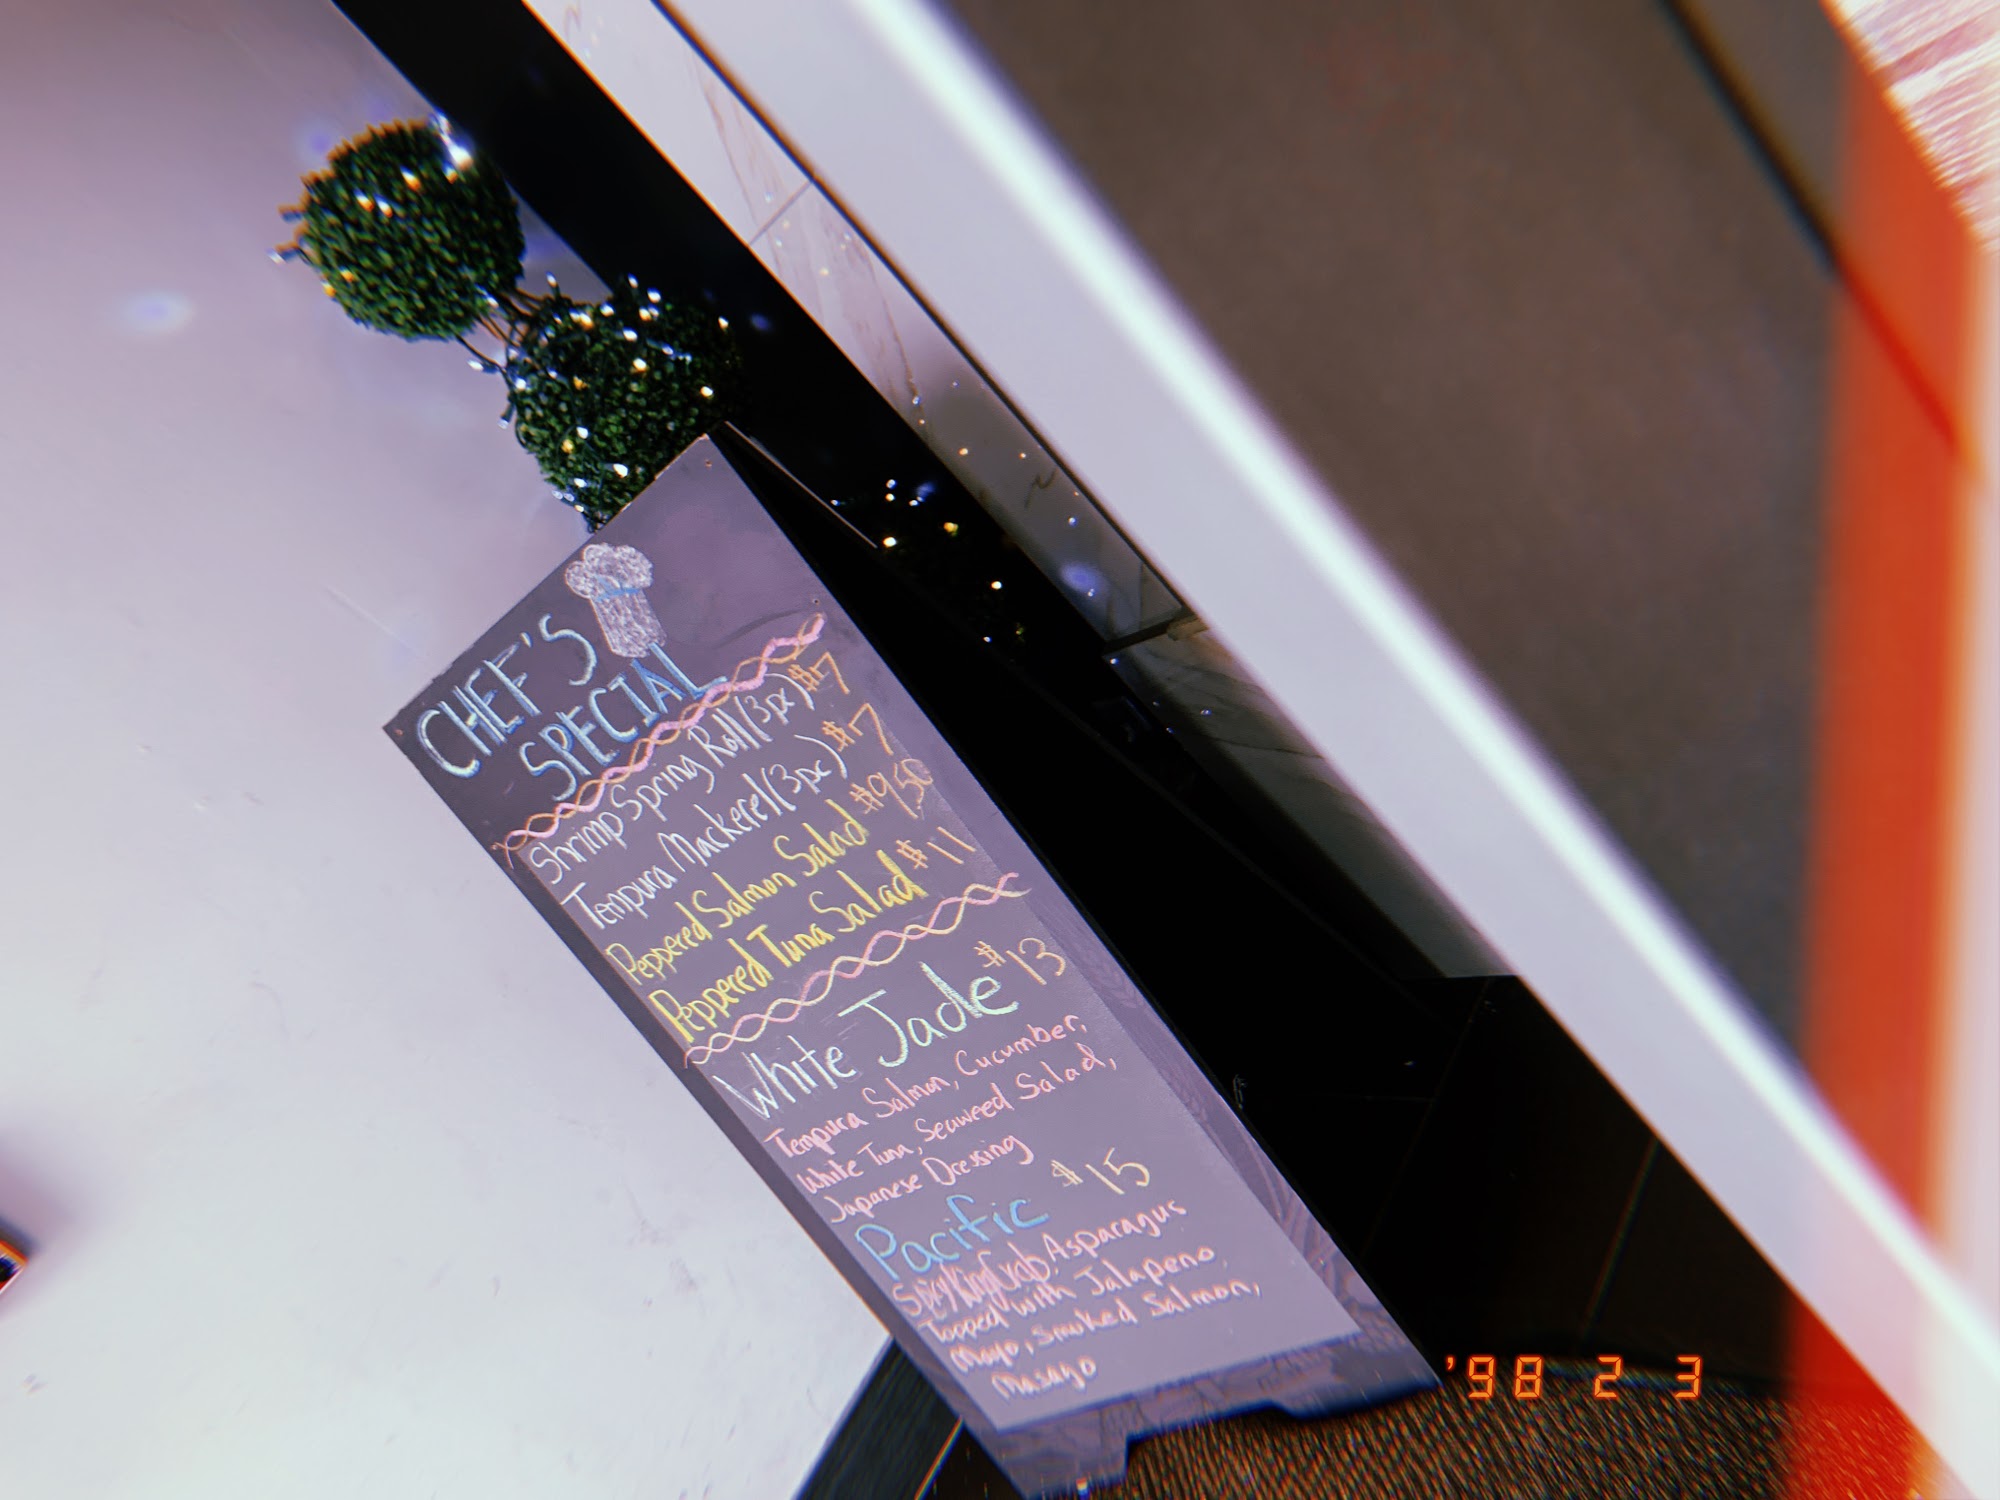 CHEF'S
SPECIAL
Shrimp Spring Roll (3pc) $7
Tempura Mackerel (3pc) $7
Peppered Salmon Salad $9.50
Peppered Tuna Salad $11
White Jade $13
Tempura Salmon, Cucumber,
White Tuna, Seaweed Salad,
Japanese Dressing
Pacific $15
Spicy King Crab, Asparagus
Topped with Jalapeno
Mayo, Smoked Salmon,
Masago
'98 2 3